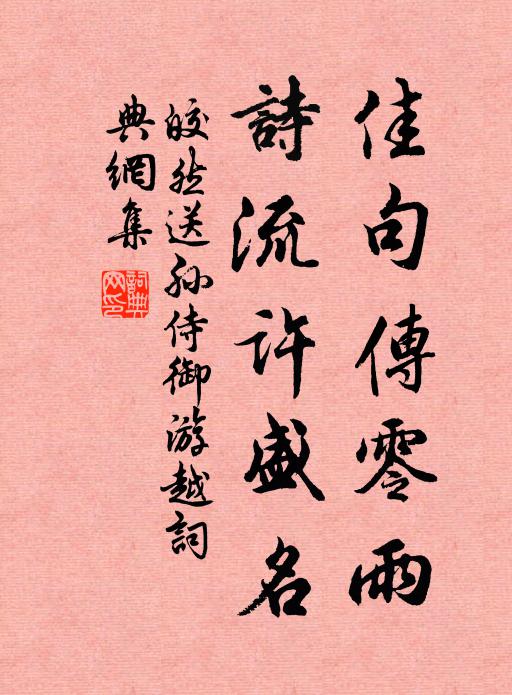 佳句傳零雨
詩流許盛名
皎然送孫侍御游越詞
典網集
詞典網印